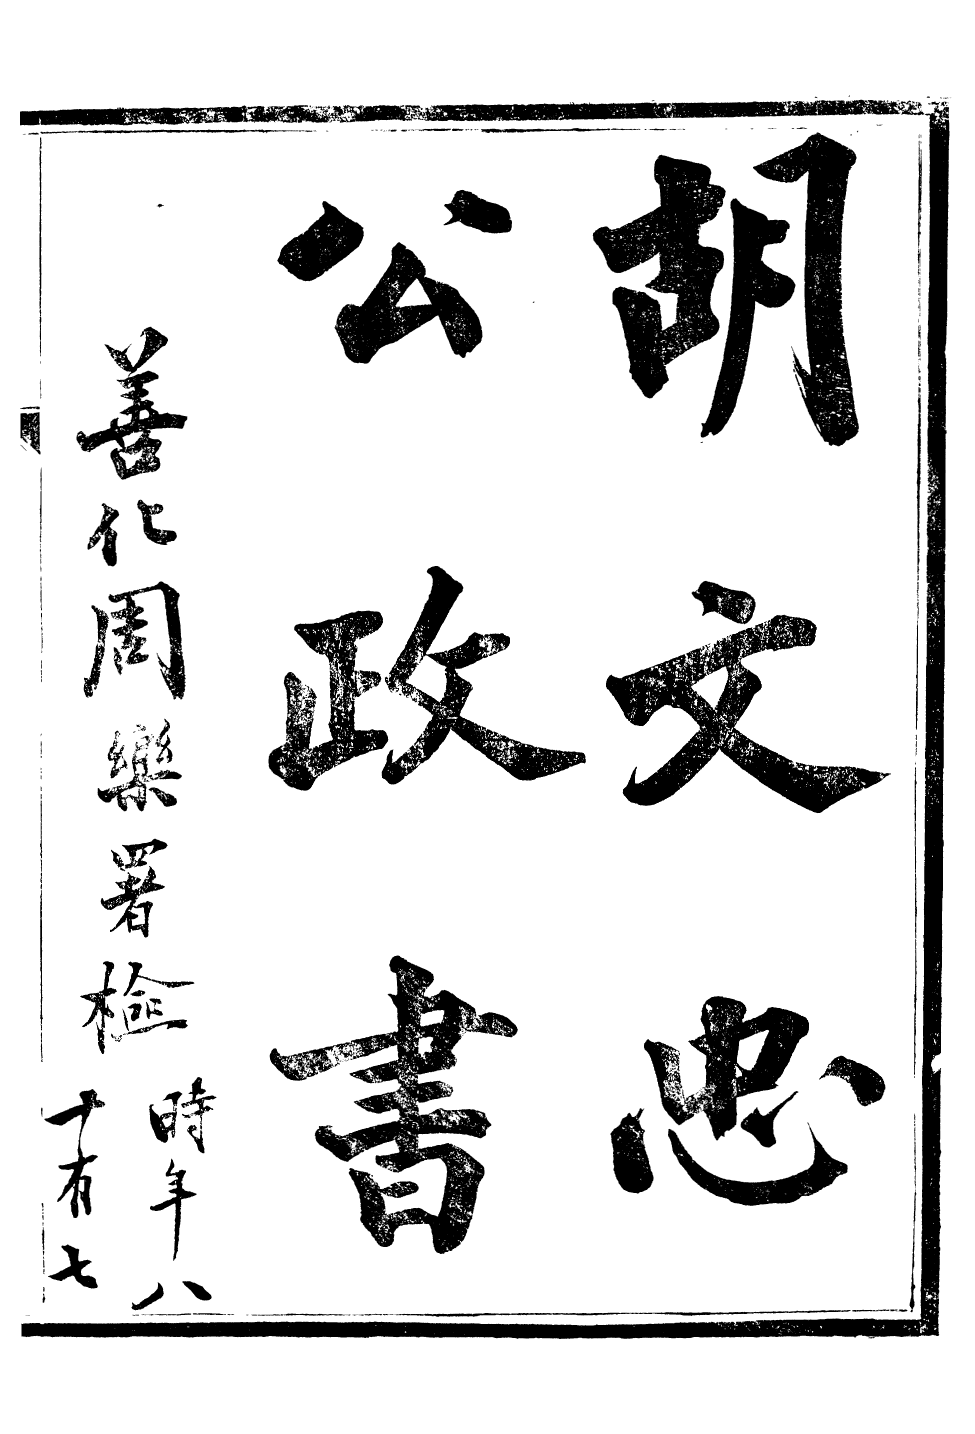 胡文忠
公政書
善化周樂署檢
時年八
十有七